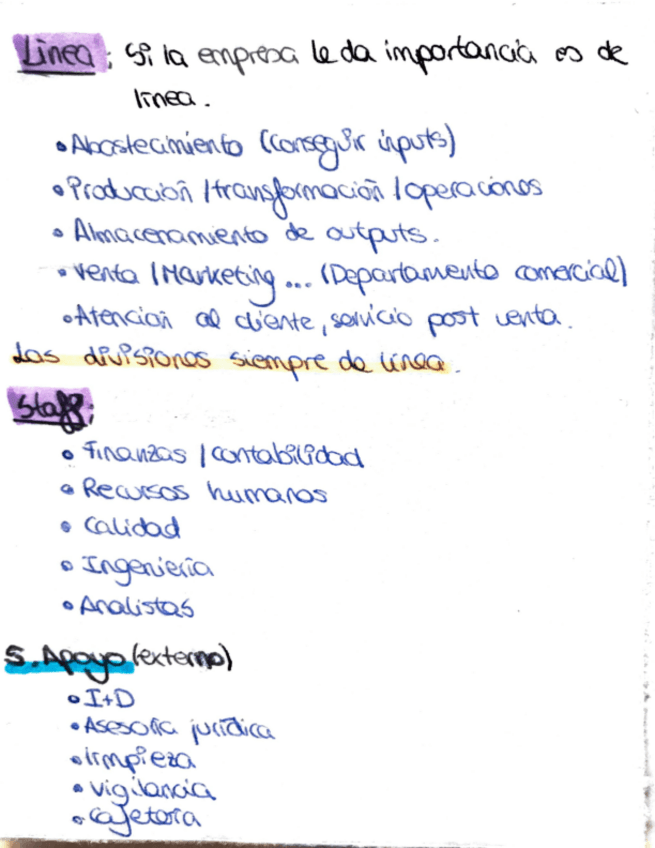 Línea: Si la empresa le da importancia es de
línea.
• Abastecimiento (conseguir inputs)
• Producción / transformación / operaciones
• Almacenamiento de outputs.
• Venta / Marketing... (Departamento comercial)
• Atención al cliente, servicio post venta.
Las divisiones siempre de línea.
Staff:
• Finanzas / contabilidad
• Recursos humanos
• Calidad
• Ingeniería
• Analistas
S. Apoyo (externo)
• I+D
• Asesoría jurídica
• limpieza
• vigilancia
• cafetería